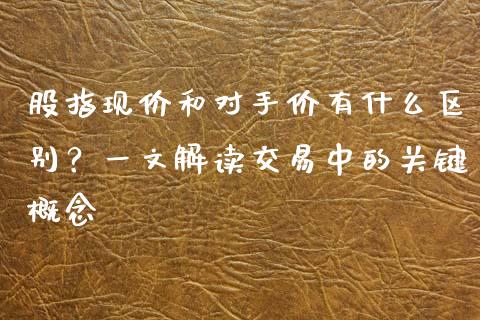 股指现价和对手价有什么区
别？一文解读交易中的关键
概念